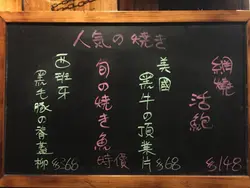 人気の焼き
網燒
活鮑
$148
美國
黑牛の頂業
片
$68
旬の焼き魚
時價
西班牙
黑毛豚の脊蓋
柳
$68